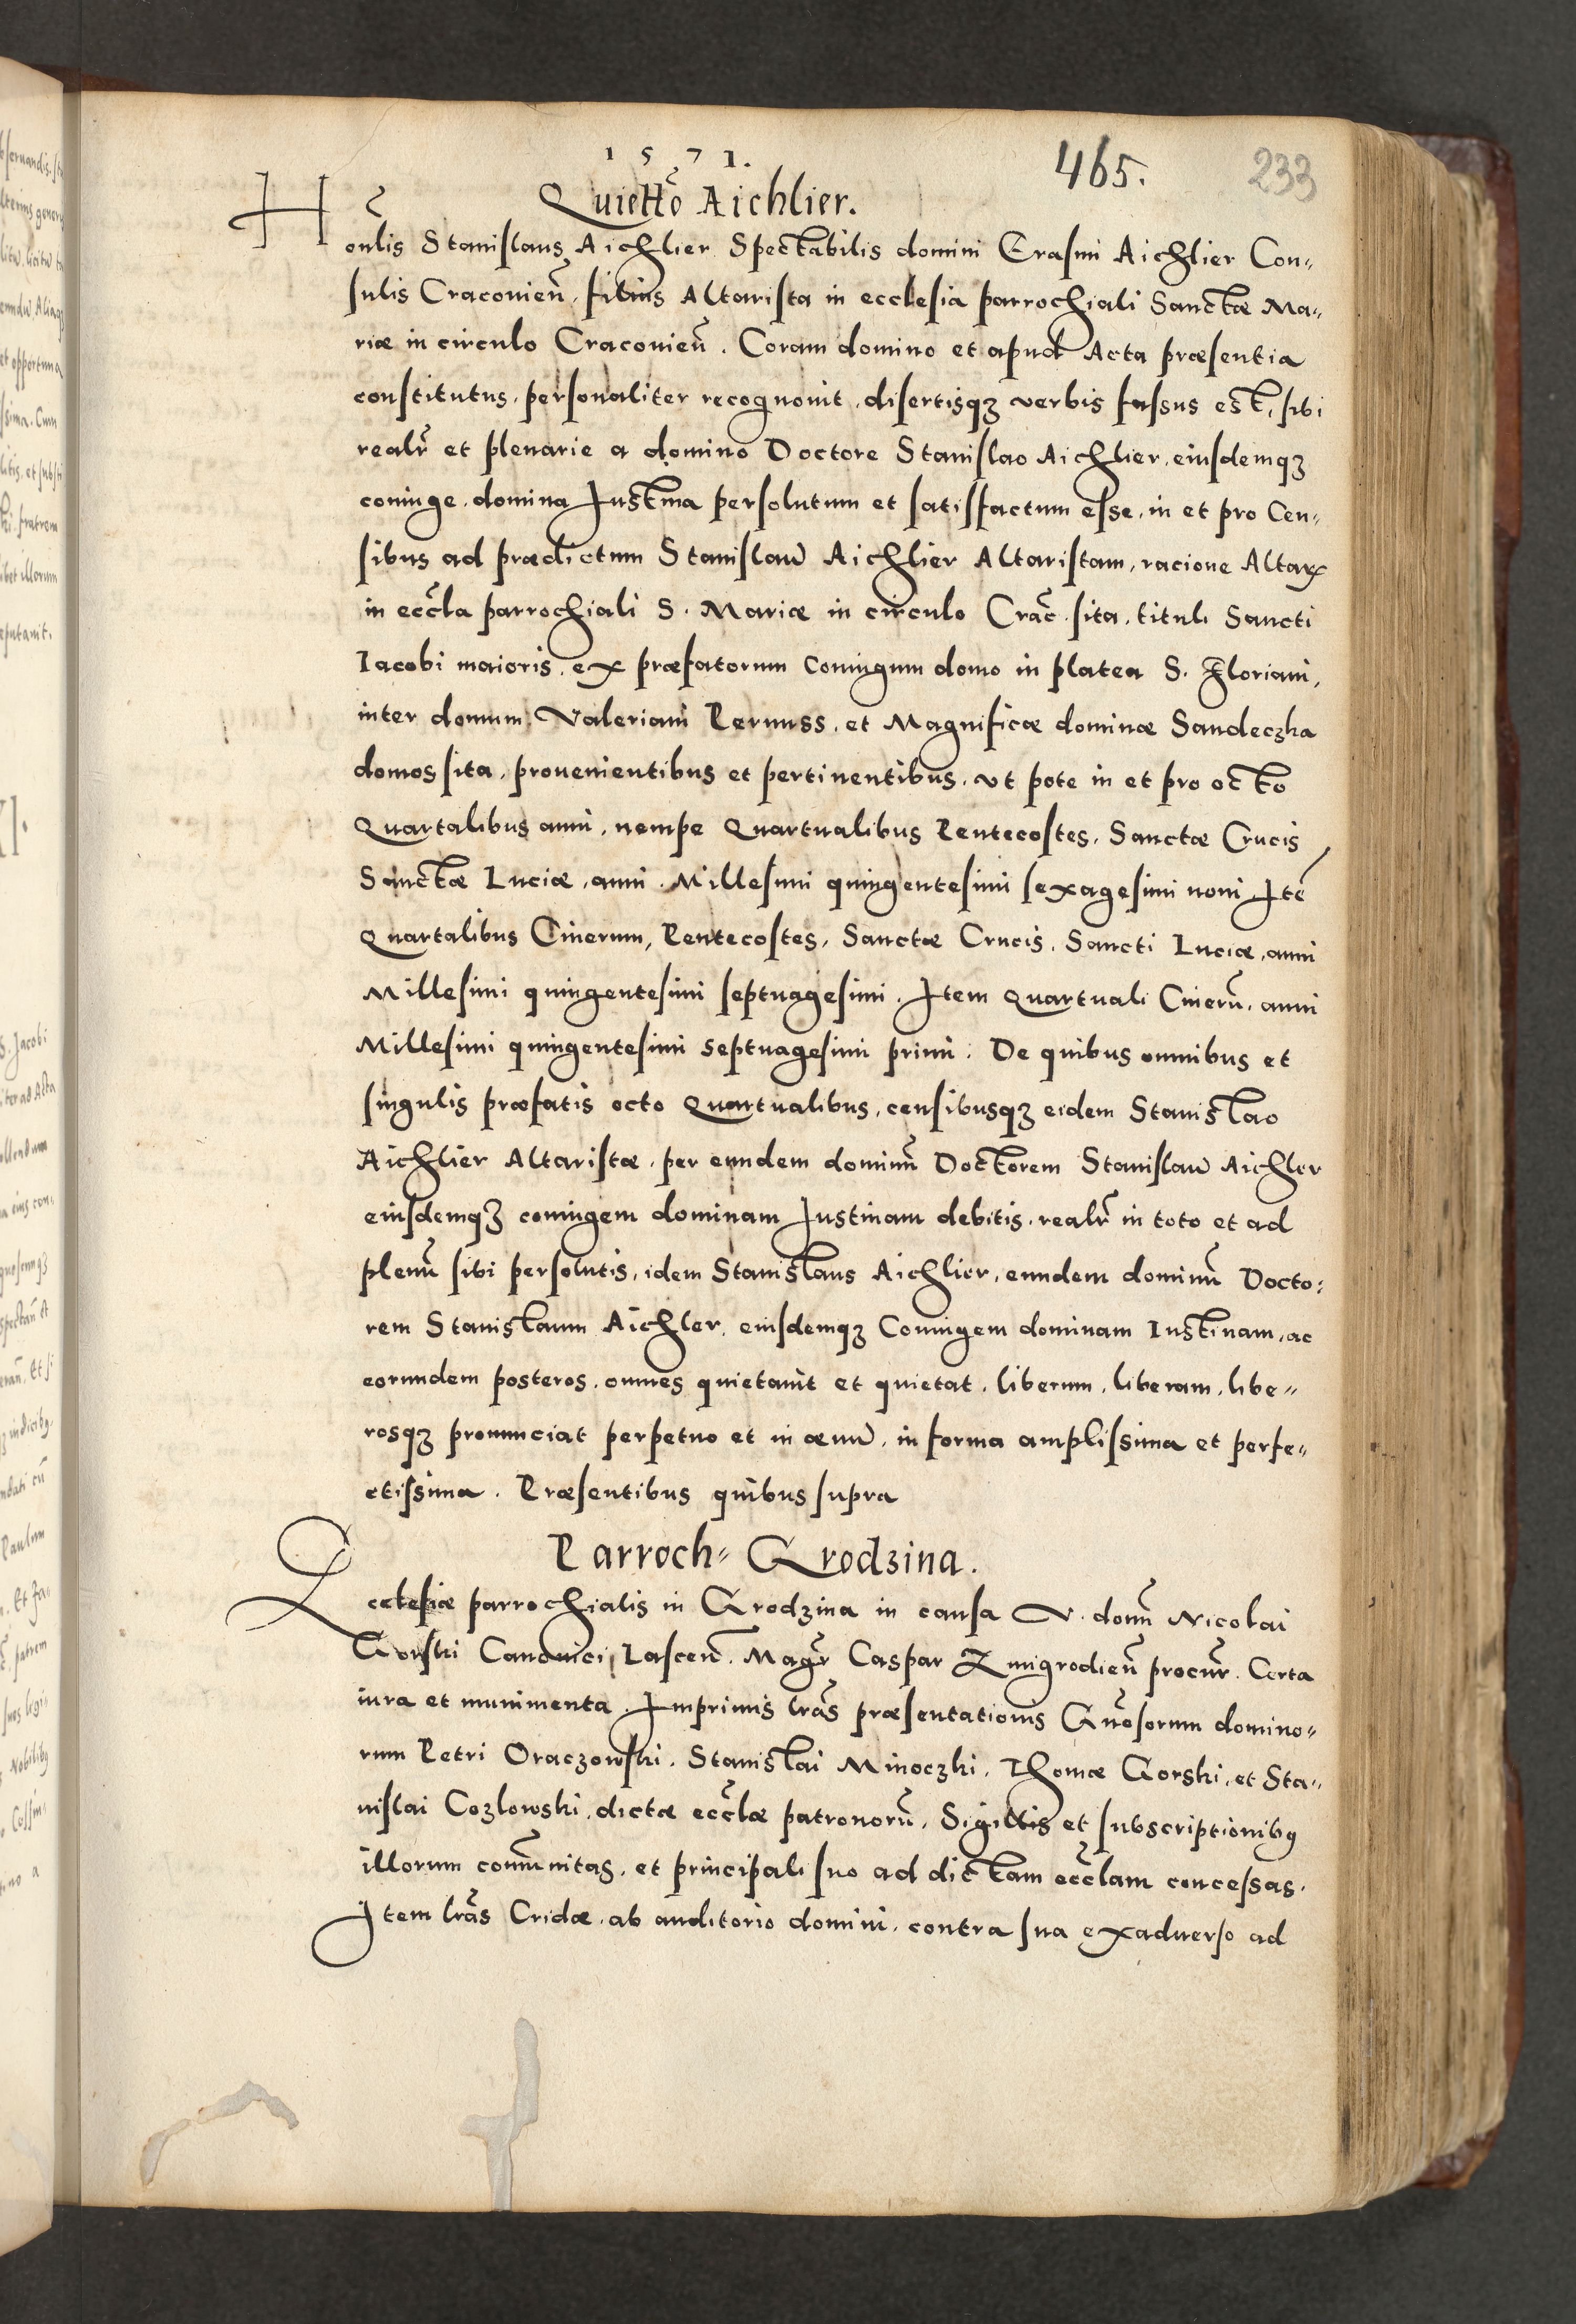 1571.
465.
233
Quiettõ Aichlier.
Honlis Stanislaus Aichlier Spectabilis domini Erasmi Aichlier Con„
sulis Craconieñ, filius Altarista in ecclesia parrochiali Sanctæ Ma„
riæ in circulo Craconieñ. Coram domino et apud Acta præsentia
constitutus, personaliter recognouit, disertisqꝫ verbis fassus est, sibi
realr̃ et plenarie a domino Doctore Stanislao Aichlier, eiusdemqꝫ
coniuge, domina Justina persolutum et satisfactum esse, in et pro Cen„
sibus ad prædictum Stanislaũ Aichlier Altaristam, racione Altarꝭ
in eccl̃a parrochiali S. Mariæ in circulo Crac̃. sita, tituli Sancti
Iacobi maioris, ex præfatorum Coniugum domo in platea S. Floriani,
inter domum Valeriani Pernuss, et Magnificæ dominæ Sandeczka
domos sita, prouenientibus et pertinentibus, vt pote in et pro octo
Quartalibus anni, nempe Quartualibus Pentecostes, Sanctæ Crucis
Sanctæ Luciæ, anni Millesimi quingentesimi sexagesimi noni Itẽ
Quartalibus Cinerum, Pentecostes, Sanctæ Crucis, Sancti Luciæ, anni
Millesimi quingentesimi septuagesimi. Item Quartuali Cinerũ, anni
Millesimi quingentesimi septuagesimi primi. De quibus omnibus et
singulis præfatis octo Quartualibus, censibusqꝫ eidem Stanislao
Aichlier Altaristæ, per eundem dominũ Doctorem Stanislaũ Aichler
eiusdemqꝫ coniugem dominam Justinam debitis, realr̃ in toto et ad
plenũ sibi persolutis, idem Stanislaus Aichlier, eundem dominũ Docto:
rem Stanislaum Aichler, eiusdemqꝫ Coniugem dominam Iustinam, ac
eorundem posteros, omnes quietauit et quietat, liberum, liberam, libe„
rosqꝫ pronunciat perpetuo et in æuũ, in forma amplissima et perfe„
ctissima. Præsentibus quibus supra
Parroch„ Grodzina.
Ecclesiæ parrochialis in Grodzina in causa V. domĩ Nicolai
Gorski Canonici Lasceñ. Magr̃ Caspar Zmigrodieñ procur̃. Certa
iura et munimenta. Imprimis lr̃as præsentationis Gñosorum domino„
rum Petri Oraczowski, Stanislai Minoczki, Thomæ Gorski, et Sta„
nislai Cozlowski, dictæ eccl̃æ patronorũ, Sigillis et subscriptionibꝯ
illorum com̃unitas, et principali suo ad dictam eccl̃am concessas.
Item lr̃as Cridæ, ab auditorio domini, contra sua exaduerso ad